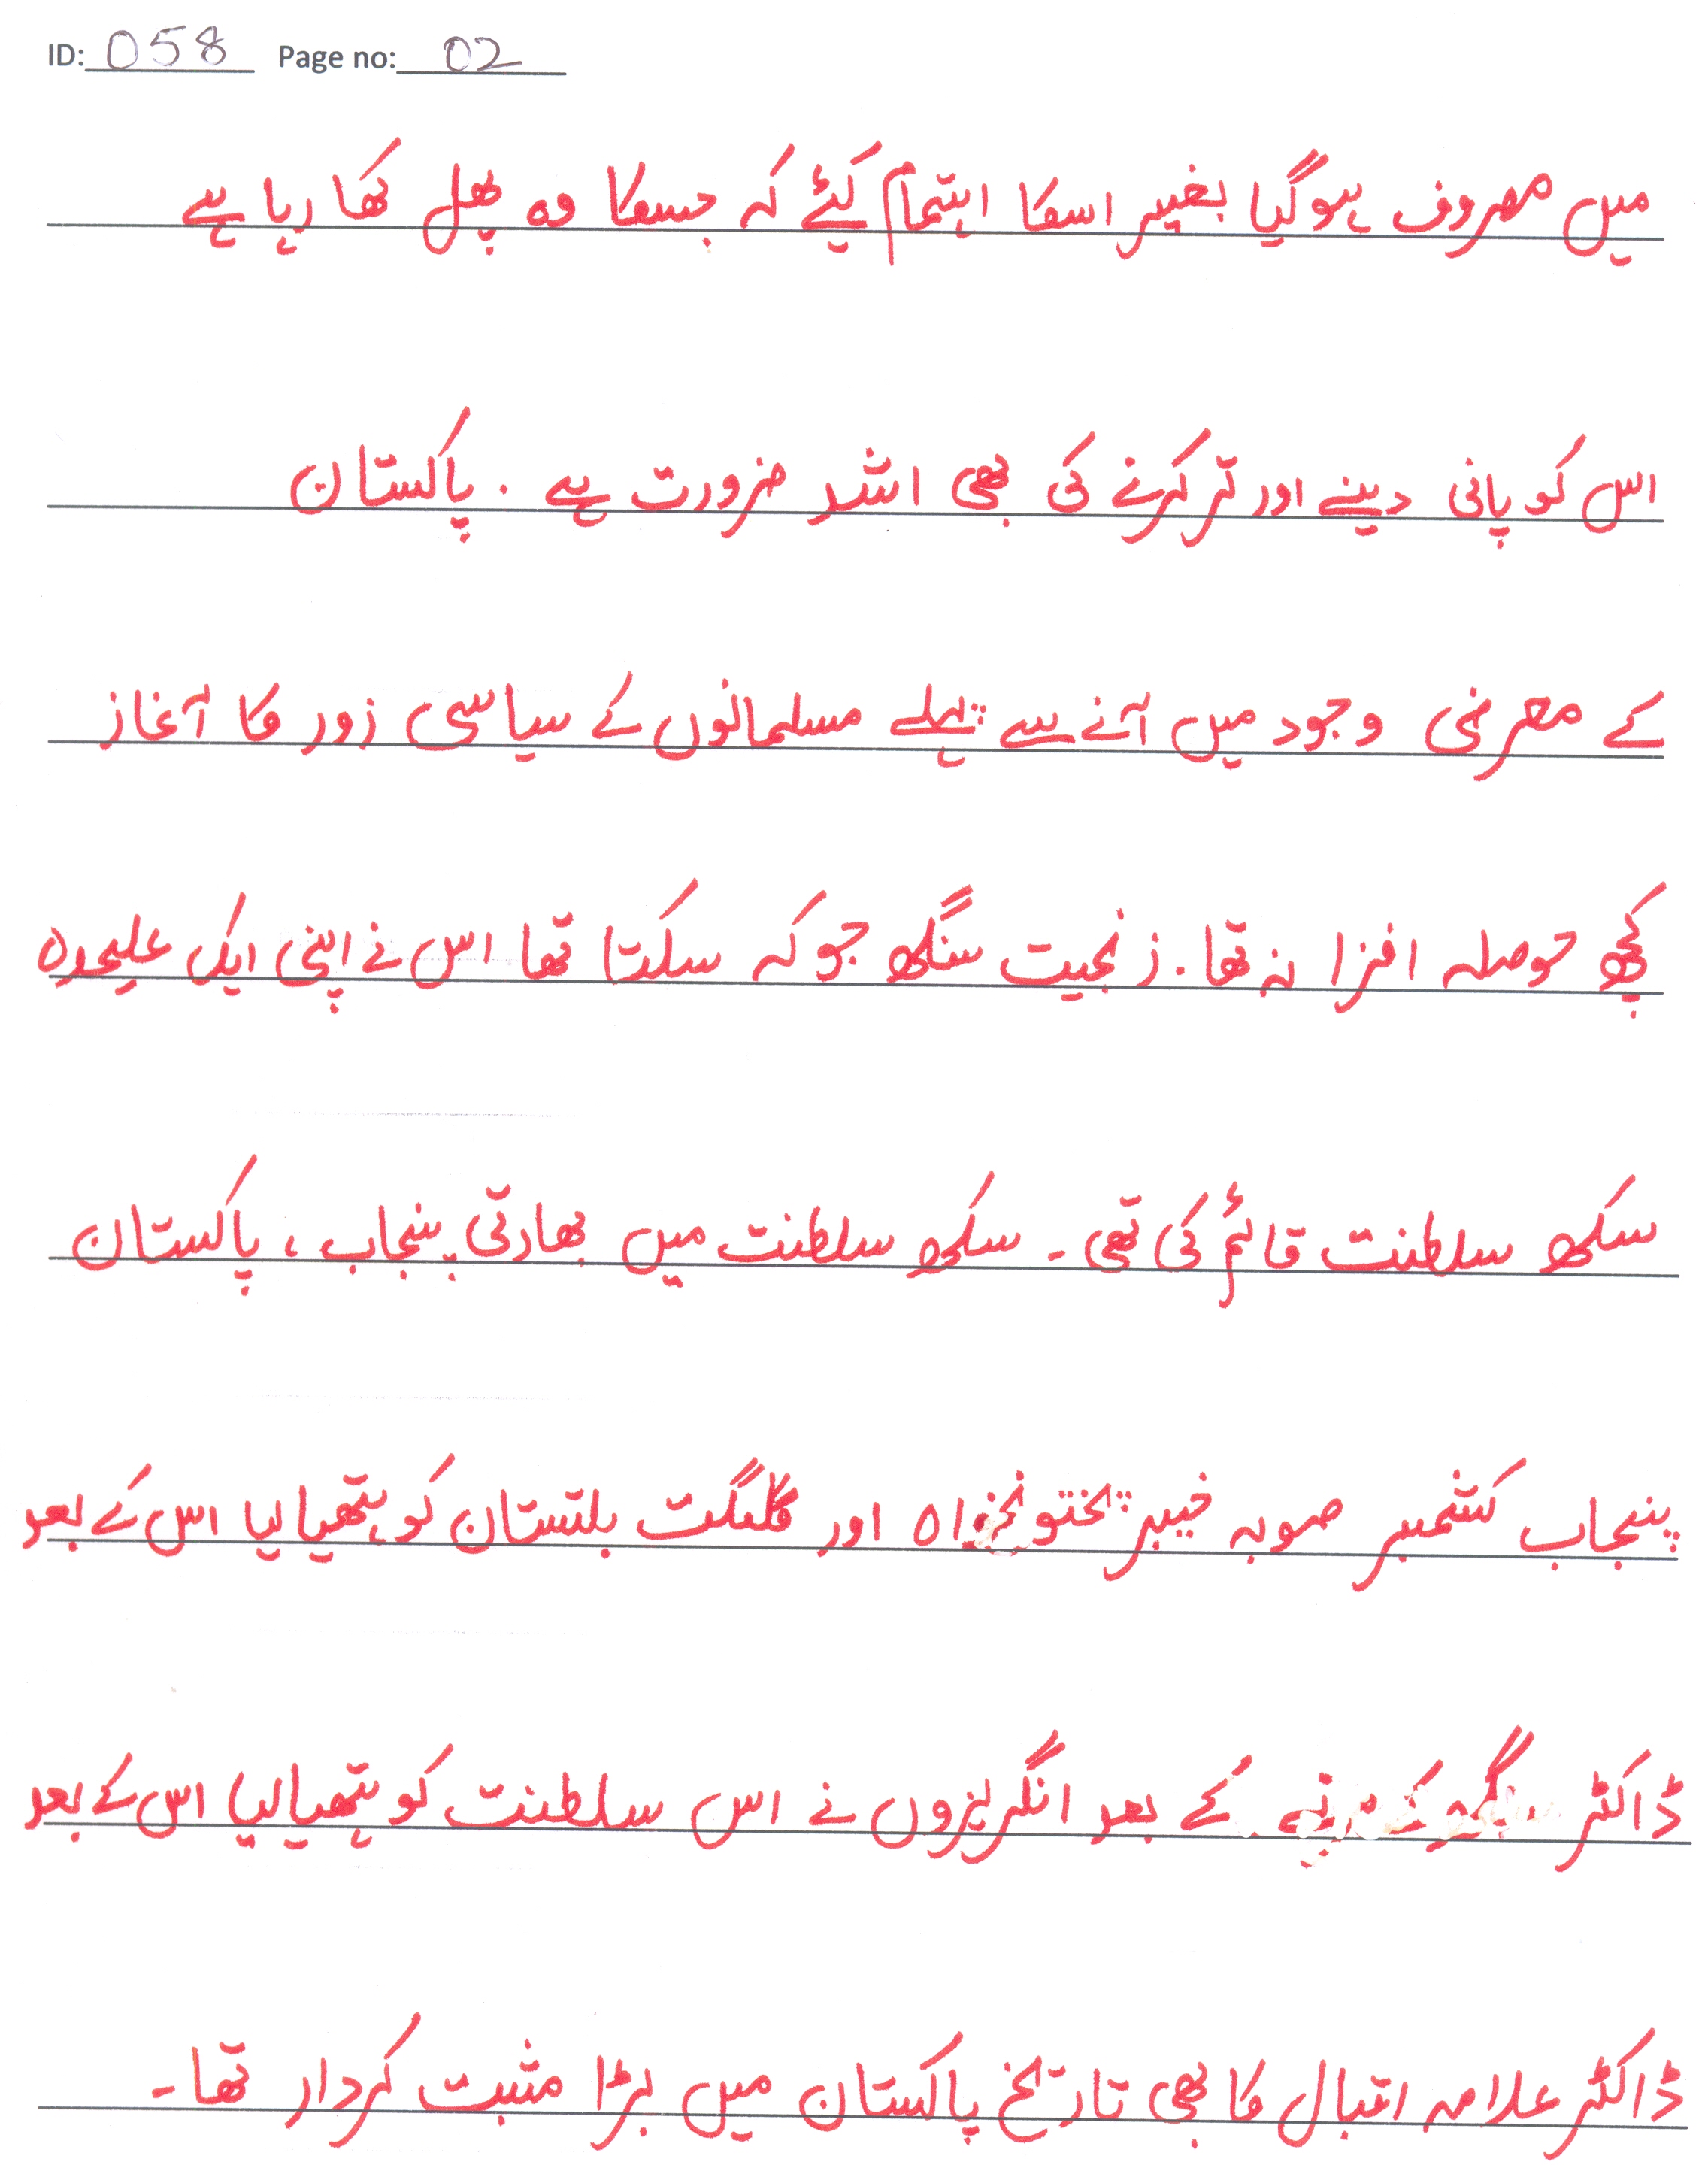 ID: 058 Page no: 02
میں مصروف ہوگیا بغیر اسکا اہتمام کیٔے کہ جسکا وہ پھل کھا رہا ہے
اس کو پانی دینے اور تر کرنے کی بھی اشد ضرورت ہے . پاکستان
کے معرضی وجود میں آنے سے پہلے مسلمانوں کے سیاسی زور کا آغاز
کچھ حوصلہ افزا نہ تھا . زنجیت سنگھ جو کہ سکتا تھا اس نے اپنی ایک علیحدہ
سکھ سلطنت قائم کی تھی ۔ سکھ سلطنت میں بھارتی پنجاب ، پاکستان
پنجاب کشمیر صوبہ خیبر پختونخواہ اور گلگت بلتستان کو ہتھیا لیا اس کے بعد
ڈاکٹر کے بعد انگریزوں نے اس سلطنت کو ہتھیا لیا اس کے بعد
ڈاکٹر علامہ اقبال کا بھی تاریخ پاکستان میں بڑا مثبت کردار تھا ۔